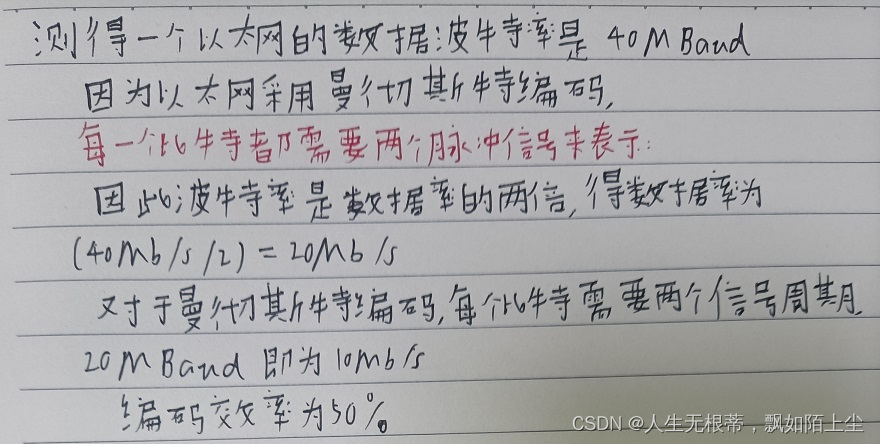 测得一个以太网的数据波特率是 40MBaud
因为以太网采用曼彻斯特编码,
每一个比特都需要两个脉冲信号来表示:
因此波特率是数据率的两倍,得数据率为
(40Mb/s/2)=20Mb/s
对于曼彻斯特编码,每个比特需要两个信号周期,
20MBaud 即为10Mb/s
编码效率为50%。
CSDN @人生无根蒂，飘如陌上尘